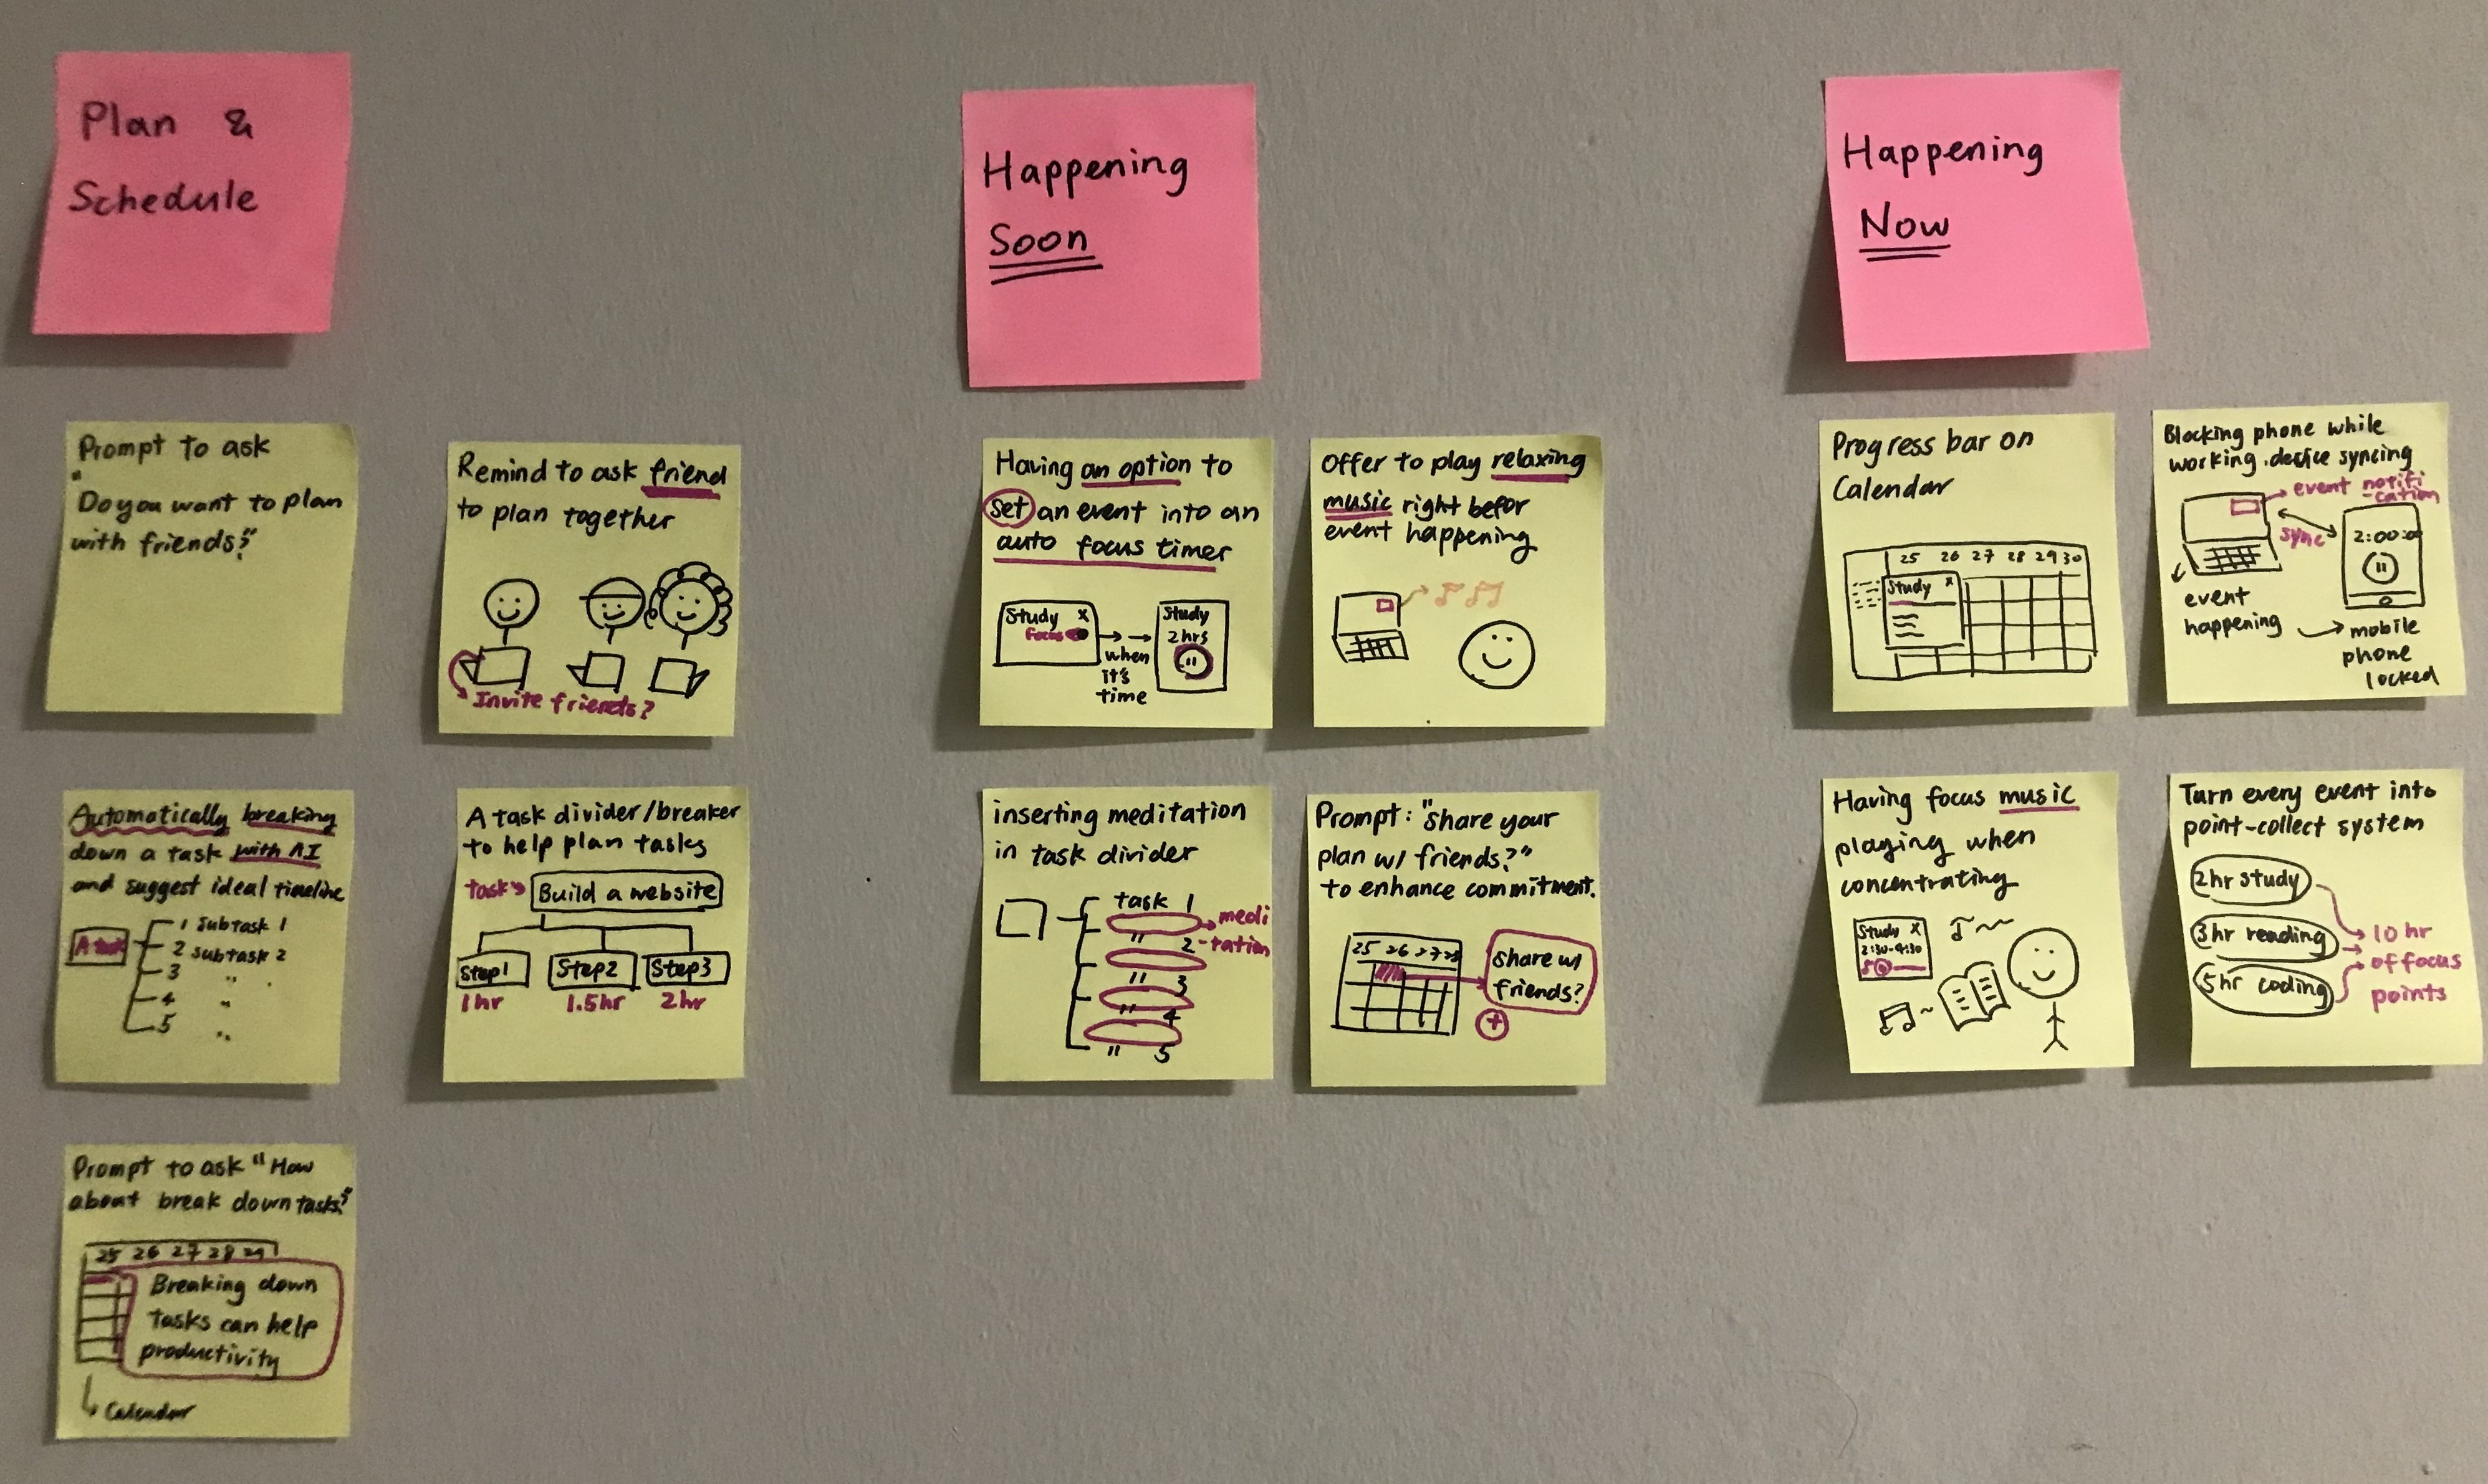 Plan &
Schedule
Happening
Soon
Happening
Now
Prompt to ask
"
Do you want to plan
with friends?"
Remind to ask friend
to plan together
Invite friends?
Automatically breaking
down a task with AI
and suggest ideal timeline
A task
1 Subtask 1
2 Subtask 2
3 "
4 "
5 "
A task divider/breaker
to help plan tasks
task
Build a website
Step1 Step2 Step3
1hr 1.5hr 2hr
Prompt to ask "How
about break down tasks?"
25 26 27 28 29
Breaking down
tasks can help
productivity
Calendar
Having an option to
set an event into an
auto focus timer
Study x
Focus
when
it's
time
Study
2hrs
Offer to play relaxing
music right befor
event happening
inserting meditation
in task divider
task 1
" 2
" 3
" 4
" 5
medi
-tation
Prompt: "share your
plan w/ friends?"
to enhance commitment.
25 26 27 28
share w/
friends?
+
Progress bar on
Calendar
25 26 27 28 29 30
Study x
Blocking phone while
working. device syncing
event notifi
-cation
sync
2:00:00
event
happening
mobile
phone
locked
Having focus music
playing when
concentrating
Study x
2:30-4:30
Turn every event into
point-collect system
2hr study
3hr reading
5hr coding
10 hr
of focus
points